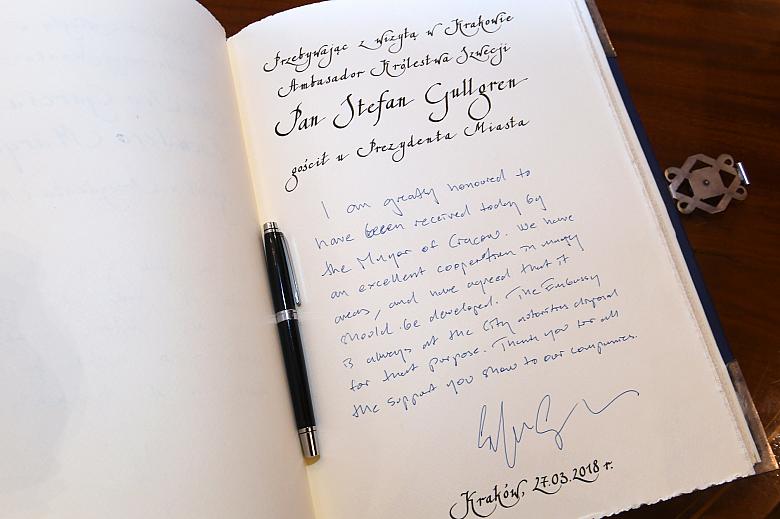 Przebywając z wizytą w Krakowie
Ambasador Królestwa Szwecji
Pan Stefan Gullgren
gościł u Prezydenta Miasta
I am greatly honoured to
have been received today by
the Mayor of Cracow. We have
an excellent cooperation in many
areas, and have agreed that it
should be developed. The Embassy
is always at the City autorities disposal
for that purpose. Thank you for all
the support you show to our companies.
Kraków, 27.03.2018 r.